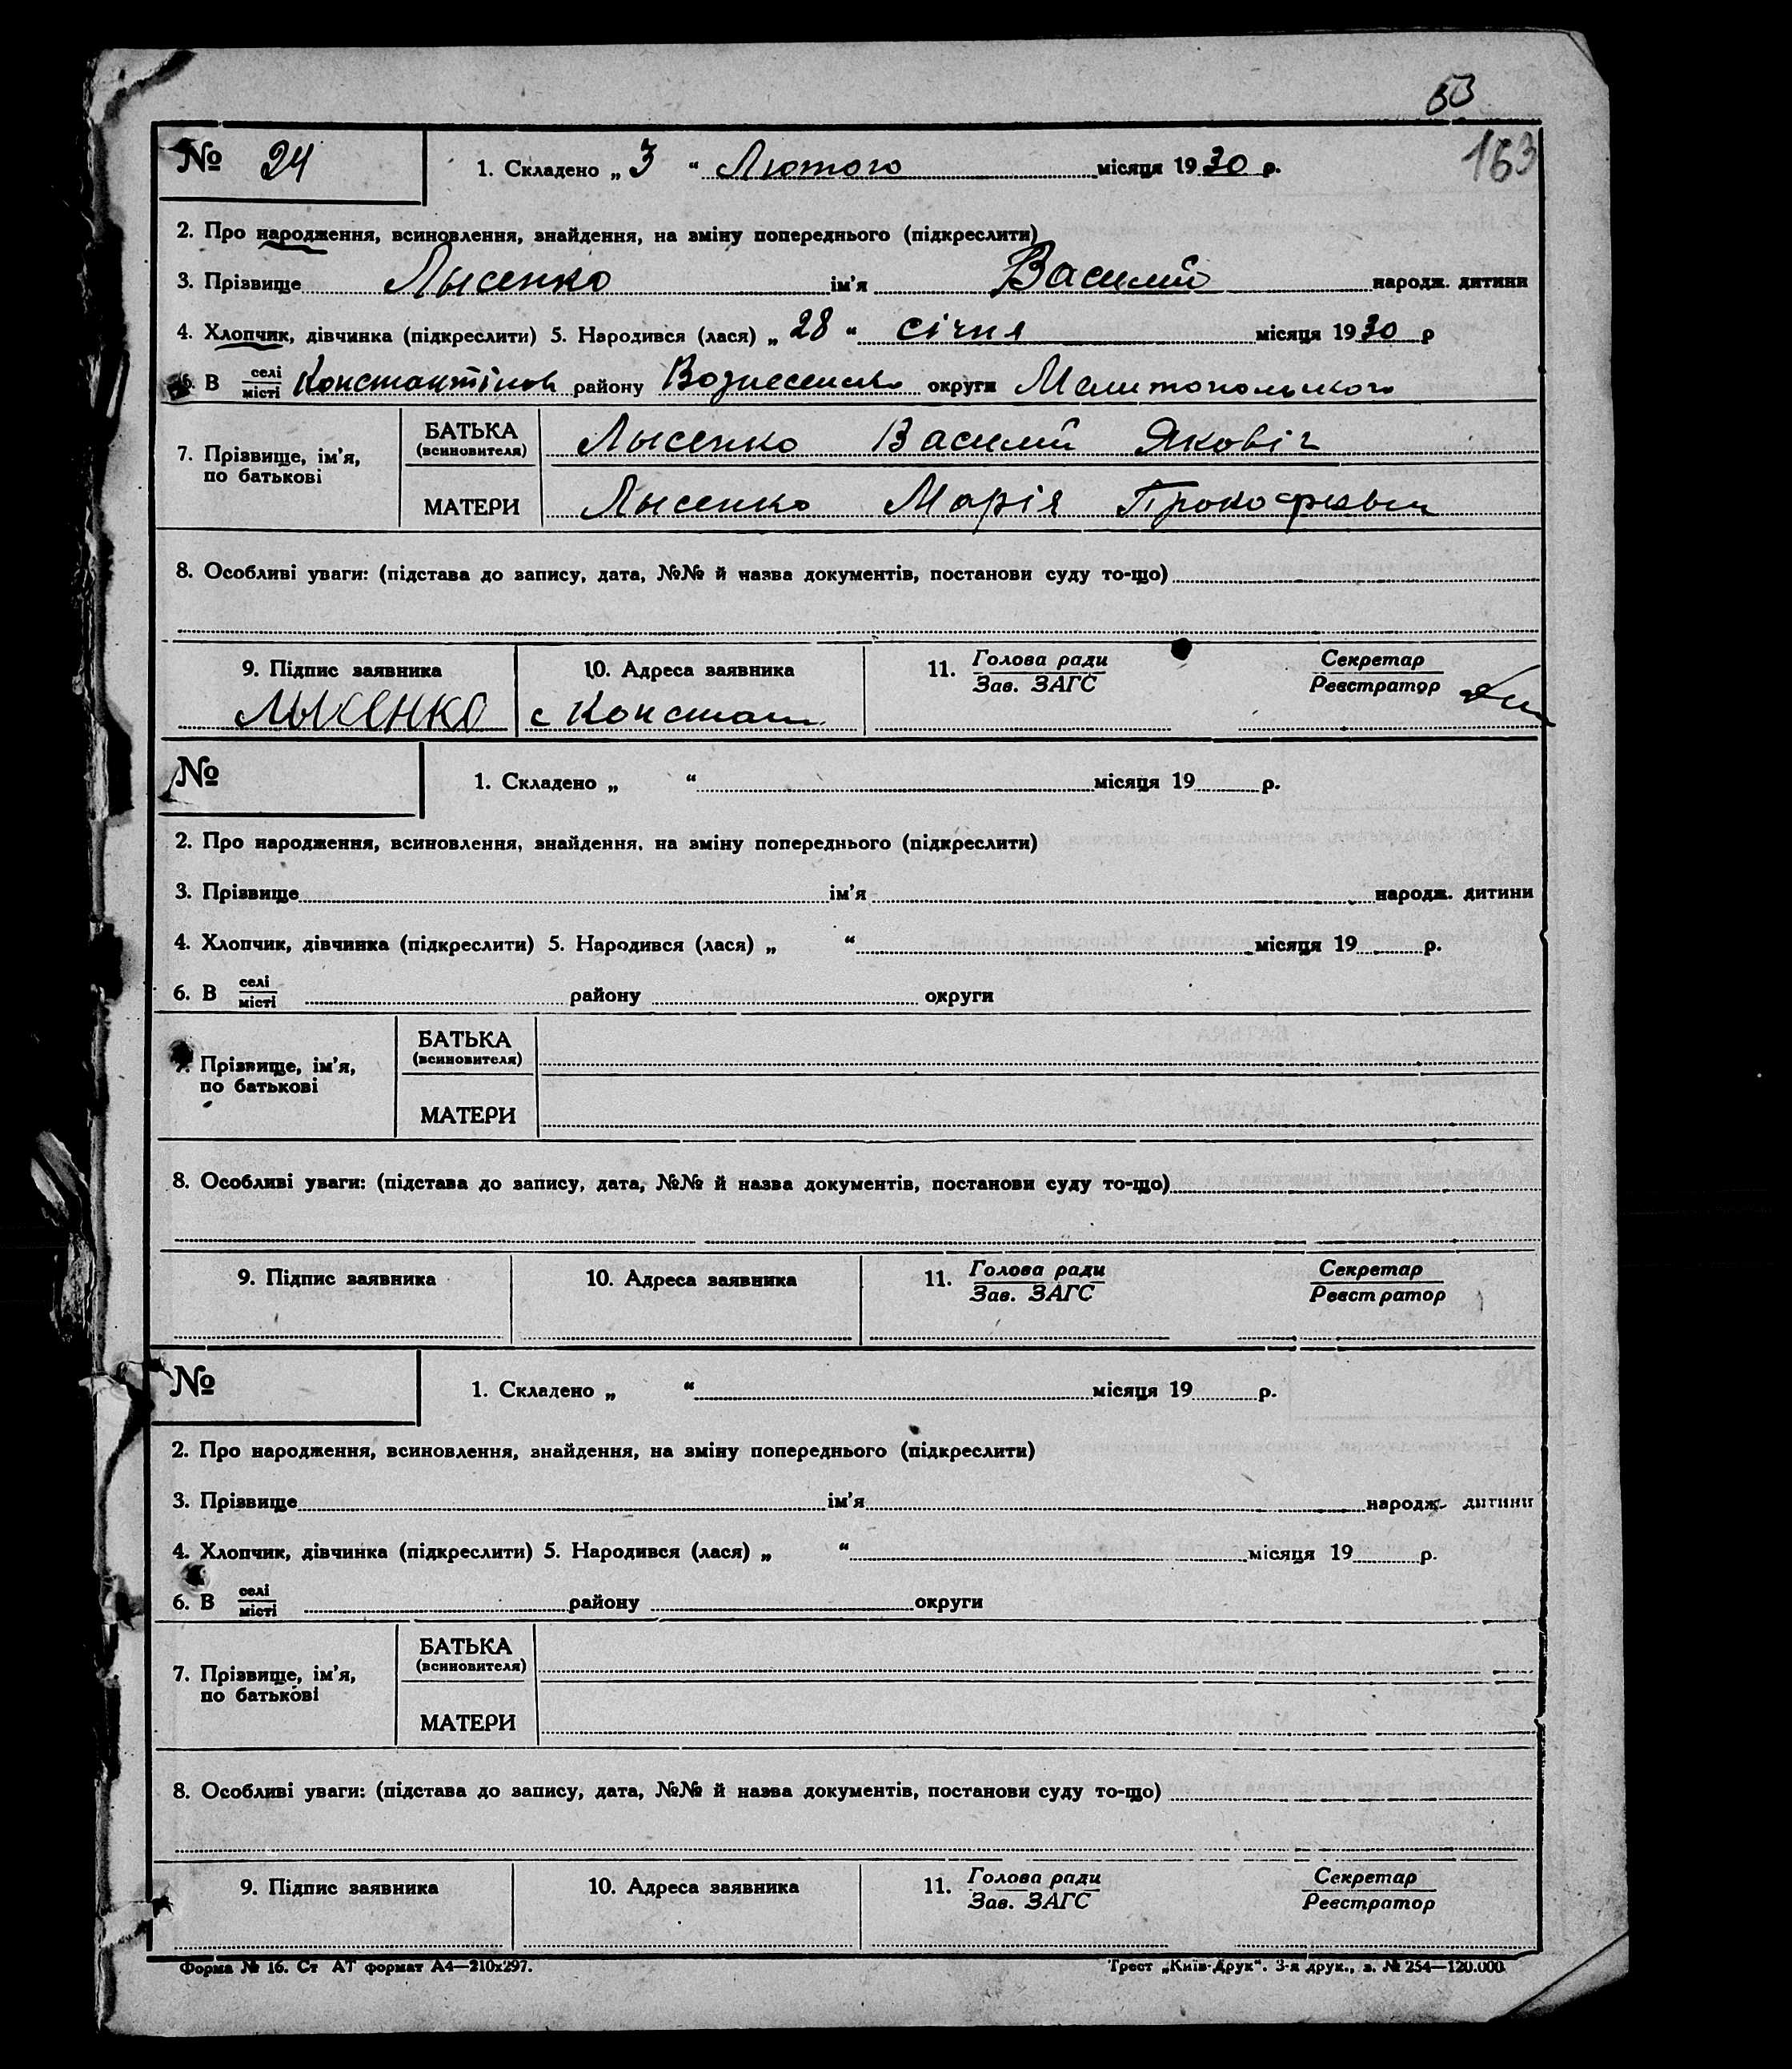 53
163
№ 24
1. Складено „ 3 “ Лютого місяця 1930 р.
2. Про народження, всиновлення, знайдення, на зміну попереднього (підкреслити)
3. Прізвище Лысенко ім'я Василий народж. дитини
4. Хлопчик, дівчинка (підкреслити) 5. Народився (лася) „ 28 “ січня місяця 1930 р
6. В селі/місті Константінов району Вознесенско округи Мелитопольского
7. Прізвище, ім'я, по батькові
БАТЬКА (всиновителя) Лысенко Василий Яковіч
МАТЕРИ Лысенко Марія
8. Особливі уваги: (підстава до запису, дата, №№ й назва документів, постанови суду то-що)
9. Підпис заявника 10. Адреса заявника 11. Голова ради/Зав. ЗАГС Секретар/Реєстратор
Лысенко с Констант
№
1. Складено „ “ місяця 19 р.
2. Про народження, всиновлення, знайдення, на зміну попереднього (підкреслити)
3. Прізвище ім'я народж. дитини
4. Хлопчик, дівчинка (підкреслити) 5. Народився (лася) „ “ місяця 19 р.
6. В селі/місті району округи
7. Прізвище, ім'я, по батькові
БАТЬКА (всиновителя)
МАТЕРИ
8. Особливі уваги: (підстава до запису, дата, №№ й назва документів, постанови суду то-що)
9. Підпис заявника 10. Адреса заявника 11. Голова ради/Зав. ЗАГС Секретар/Реєстратор
№
1. Складено „ “ місяця 19 р.
2. Про народження, всиновлення, знайдення, на зміну попереднього (підкреслити)
3. Прізвище ім'я народж. дитини
4. Хлопчик, дівчинка (підкреслити) 5. Народився (лася) „ “ місяця 19 р.
6. В селі/місті району округи
7. Прізвище, ім'я, по батькові
БАТЬКА (всиновителя)
МАТЕРИ
8. Особливі уваги: (підстава до запису, дата, №№ й назва документів, постанови суду то-що)
9. Підпис заявника 10. Адреса заявника 11. Голова ради/Зав. ЗАГС Секретар/Реєстратор
Форма № 16. Ст АТ формат А4—210х297. Трест „Київ-Друк“. 3-я друк., з. № 254—120.000